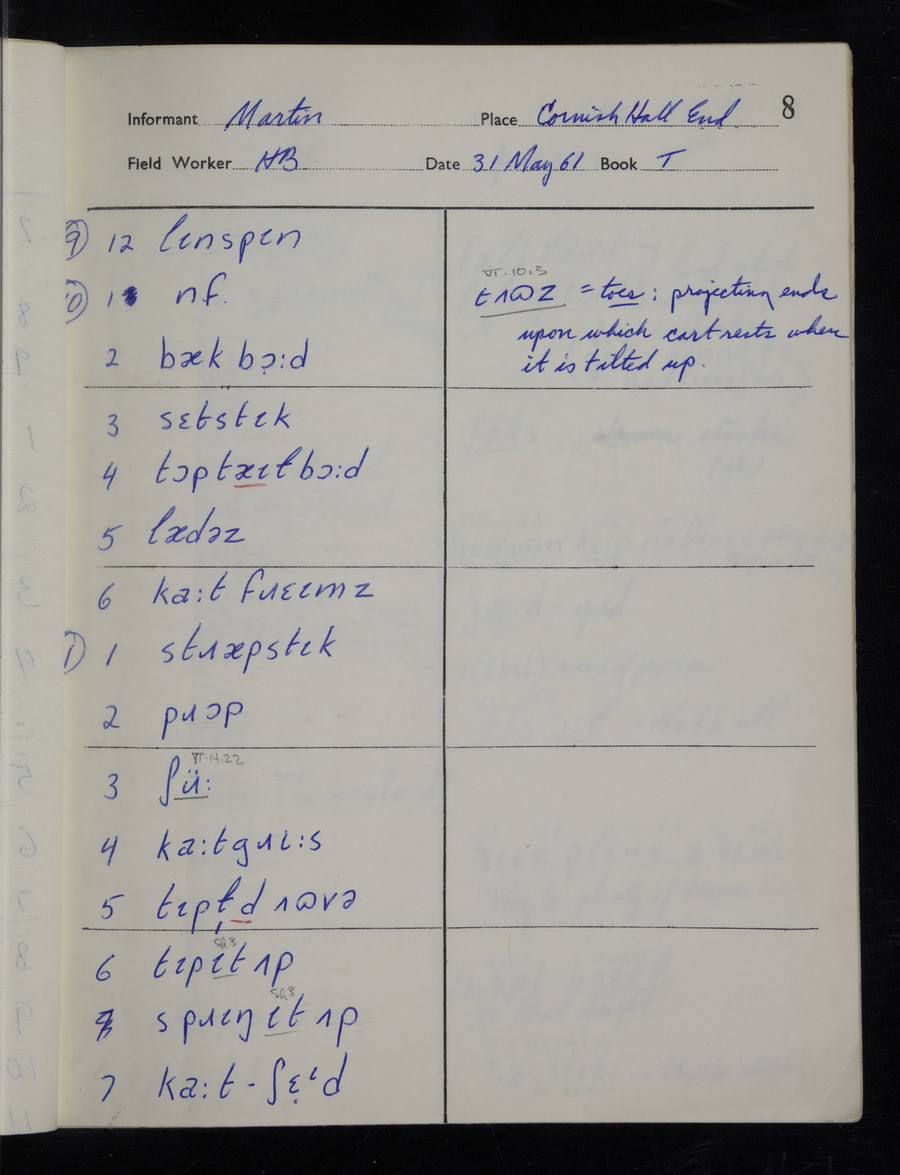 8
Informant Martin Place Cornish Hall End
Field Worker HB Date 31 May 61 Book T
9) 12 lɪnspɪn
10) 1 nf.
2 bæk bɔ̣:d
3 sɛtstɪk
4 tɔptæɪɫbɔ:d
5 lædəz
6 ka:t fɹɛɪmz
1) 1 stɹæpstɪk
2 pɹɔp
VI.14.22
3 ʃü:
4 ka:tgɹɪi:s
5 tɪpt̩d ʌʊvə
Sh3
6 tɪpɪt ʌp
Sh3
spɹɪŋ ɪt ʌp
7 ka:t-ʃɛ̣ᶦd
VI.10.3
tʌʊz = toes: projecting ends
upon which cart rests when
it is tilted up.